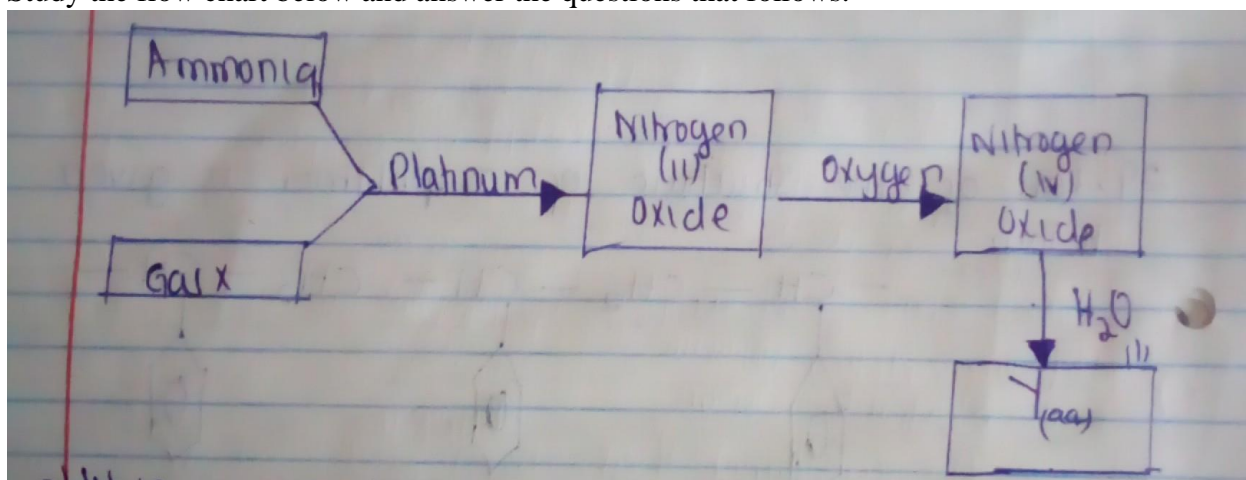 Study the flow chart below and answer the questions that follows.
Ammonia
Platinum
Gas X
Nitrogen
(II)
Oxide
Oxygen
Nitrogen
(IV)
Oxide
H₂O(l)
Y(aq)